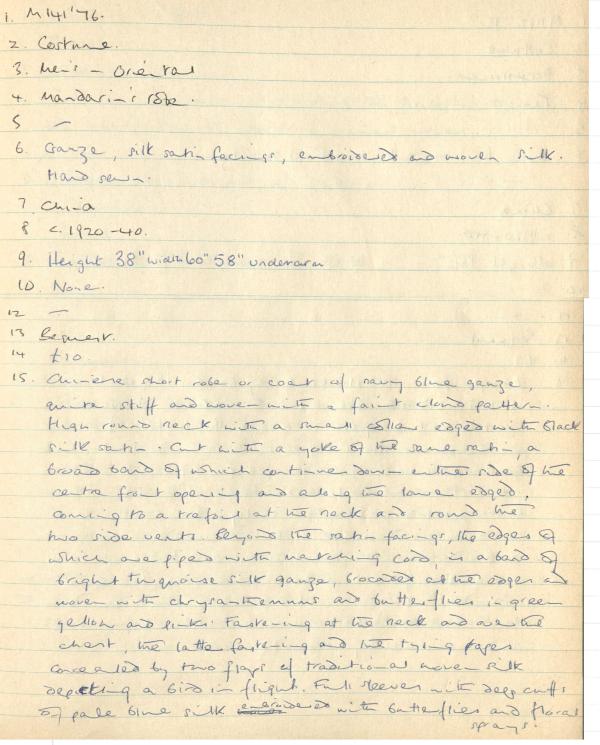 1. M141'76.
2. Costume.
3. Men's – Oriental
4. Mandarin's robe.
5 –
6. Gauze, silk satin facings, embroidered and woven silk.
Hand sewn.
7. China
8 c. 1920-40.
9. Height 38" width 60" 58" underarm
10. None.
12 –
13 Bequest.
14 £10.
15. Chinese short robe or coat of navy blue gauze,
quite stiff and woven with a faint cloud pattern.
High round neck with a small collar edged with black
silk satin. Cut with a yoke of the same satin, a
broad band of which continues down either side of the
centre front opening and along the lower edged,
coming to a trefoil at the neck and round the
two side vents. Beyond the satin facings, the edges of
which are piped with matching cord, is a band of
bright turquoise silk gauze, brocaded at the edges and
woven with chrysanthemums and butterflies in green
yellow and pinks. Fastening at the neck and over the
chest, the latter fastening and the tying tapes
concealed by two flaps of traditional woven silk
depicting a bird in flight. Full sleeves with deep cuffs
of pale blue silk embroidered with butterflies and floral
sprays.